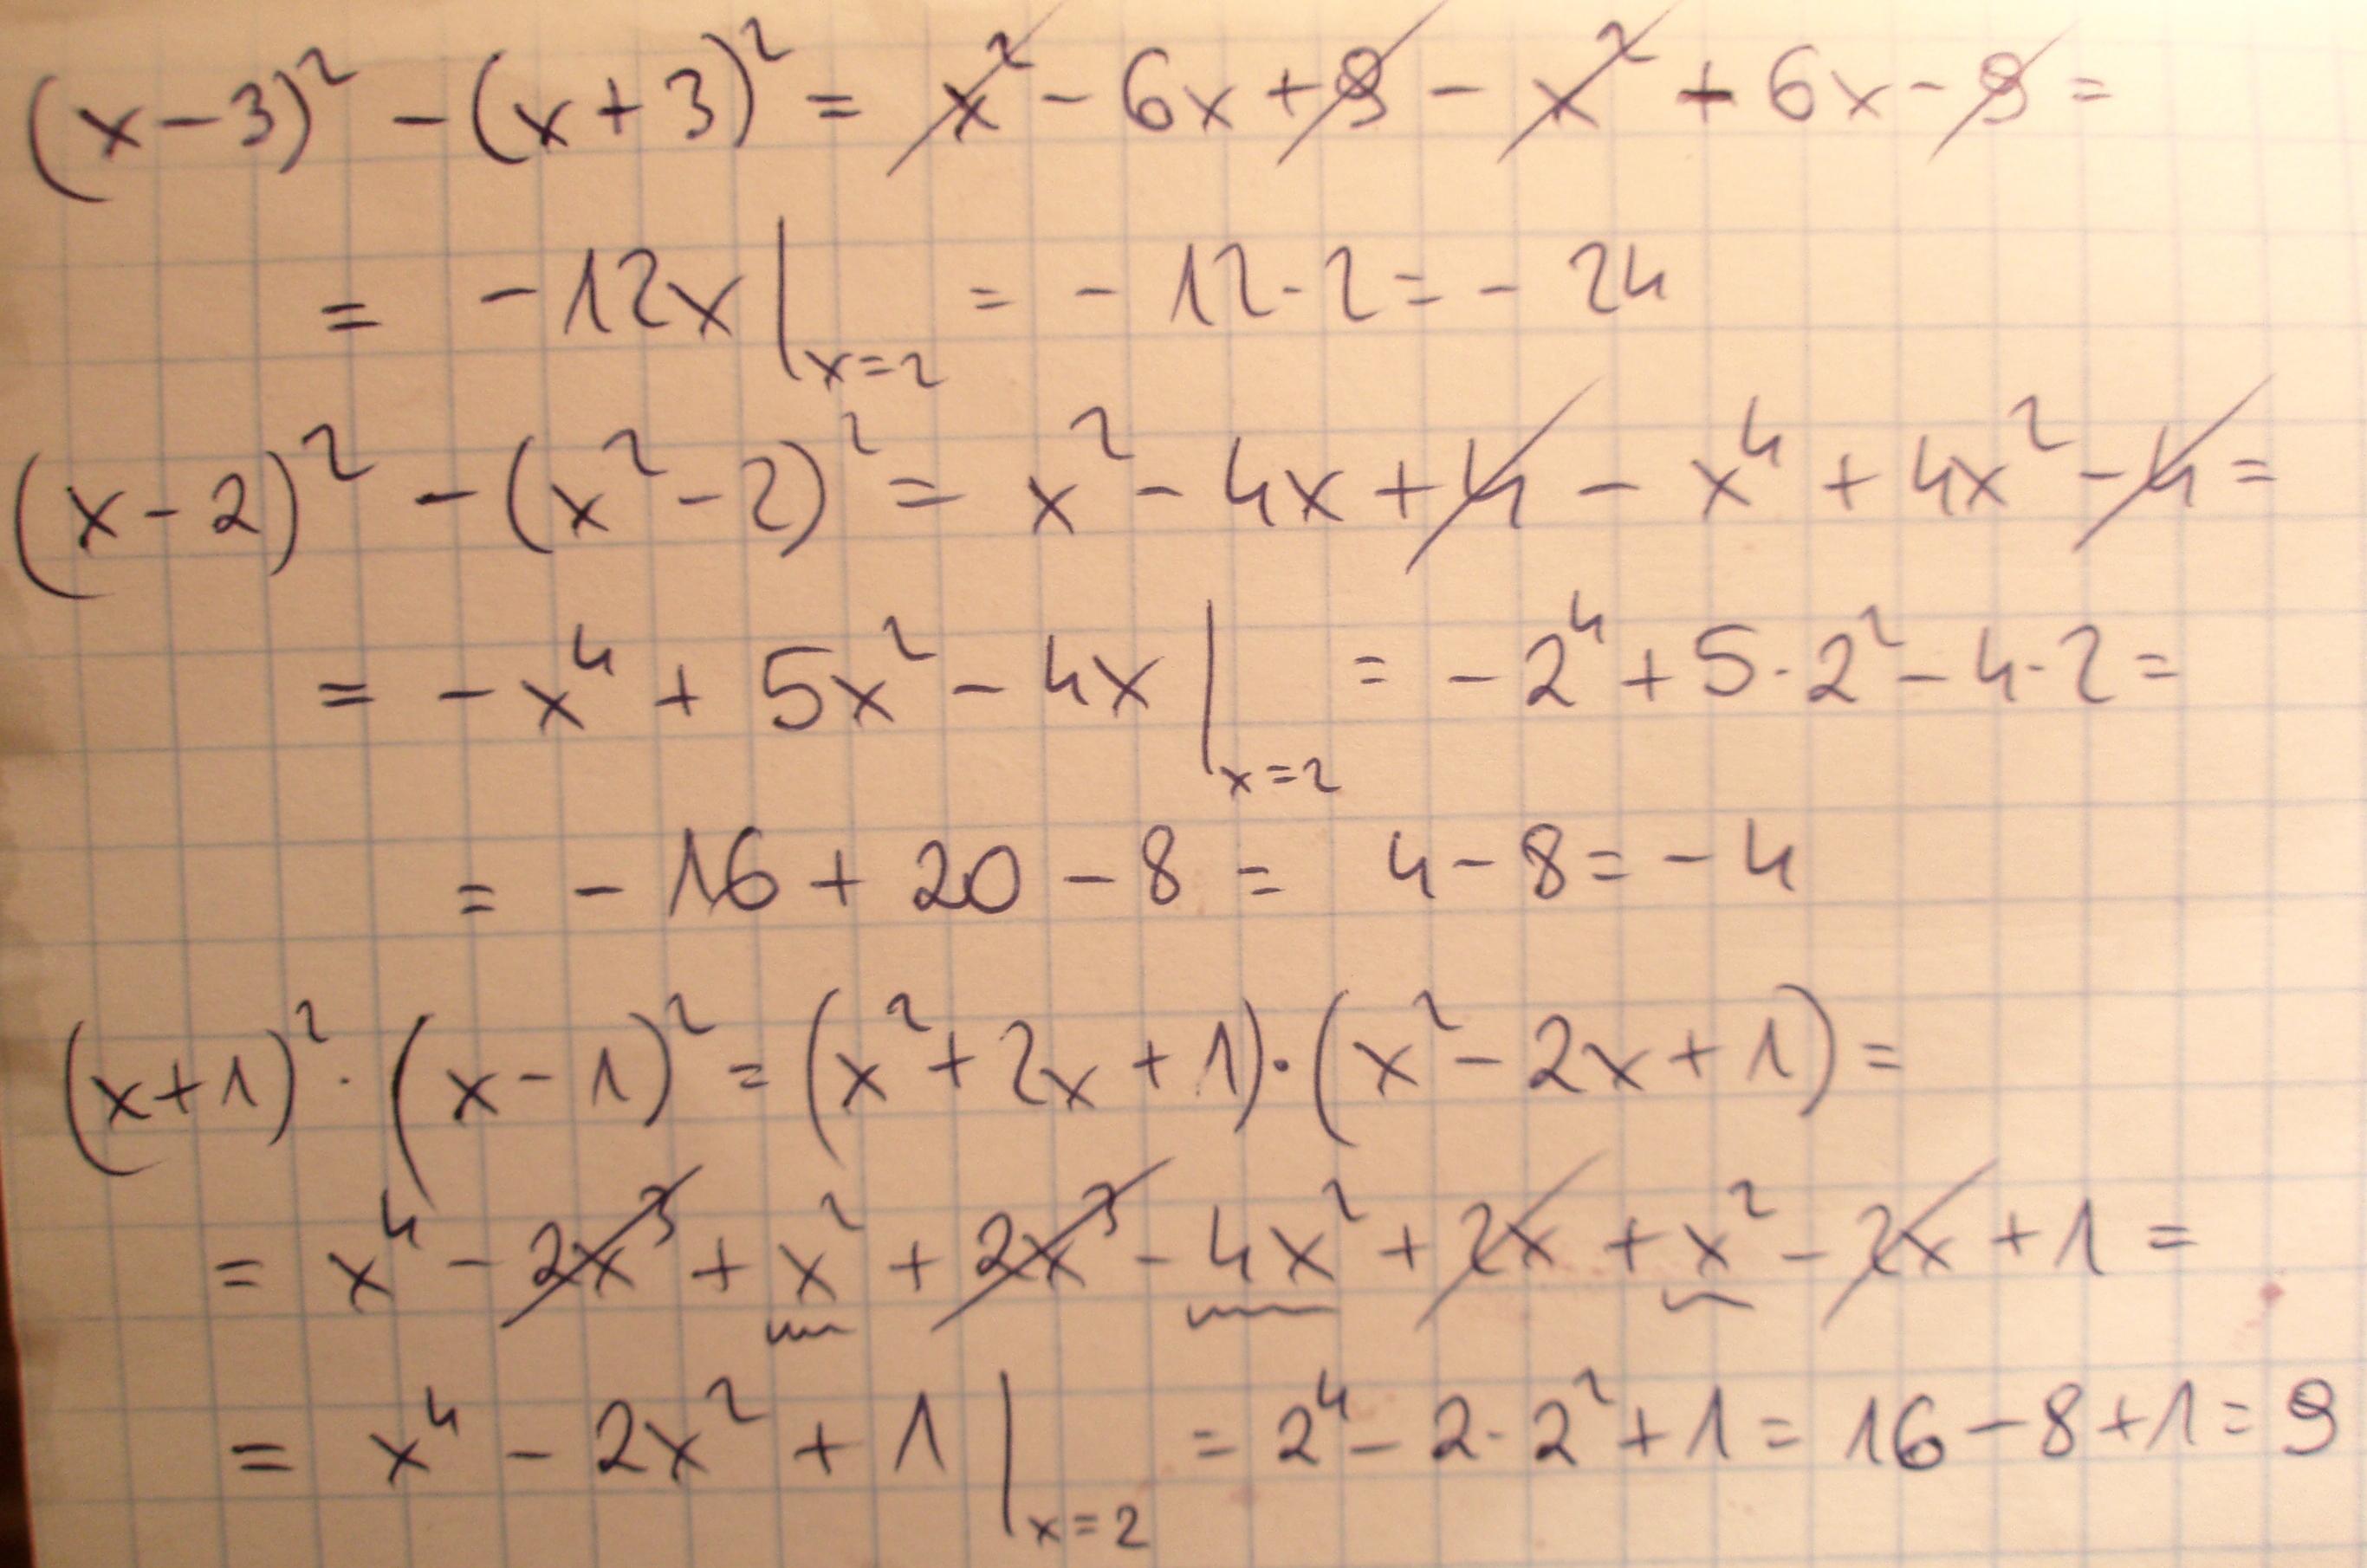 (x-3)² - (x+3)² = x² - 6x + 9 - x² + 6x - 9 =
= -12x |ₓ₌₂ = - 12·2 = - 24
(x-2)² - (x²-2)² = x² - 4x + 4 - x⁴ + 4x² - 4 =
= -x⁴ + 5x² - 4x |ₓ₌₂ = -2⁴ + 5·2² - 4·2 =
= - 16 + 20 - 8 = 4 - 8 = - 4
(x+1)² · (x-1)² = (x² + 2x + 1)·(x² - 2x + 1) =
= x⁴ - 2x³ + x² + 2x³ - 4x² + 2x + x² - 2x + 1 =
= x⁴ - 2x² + 1 |ₓ₌₂ = 2⁴ - 2·2² + 1 = 16 - 8 + 1 = 9